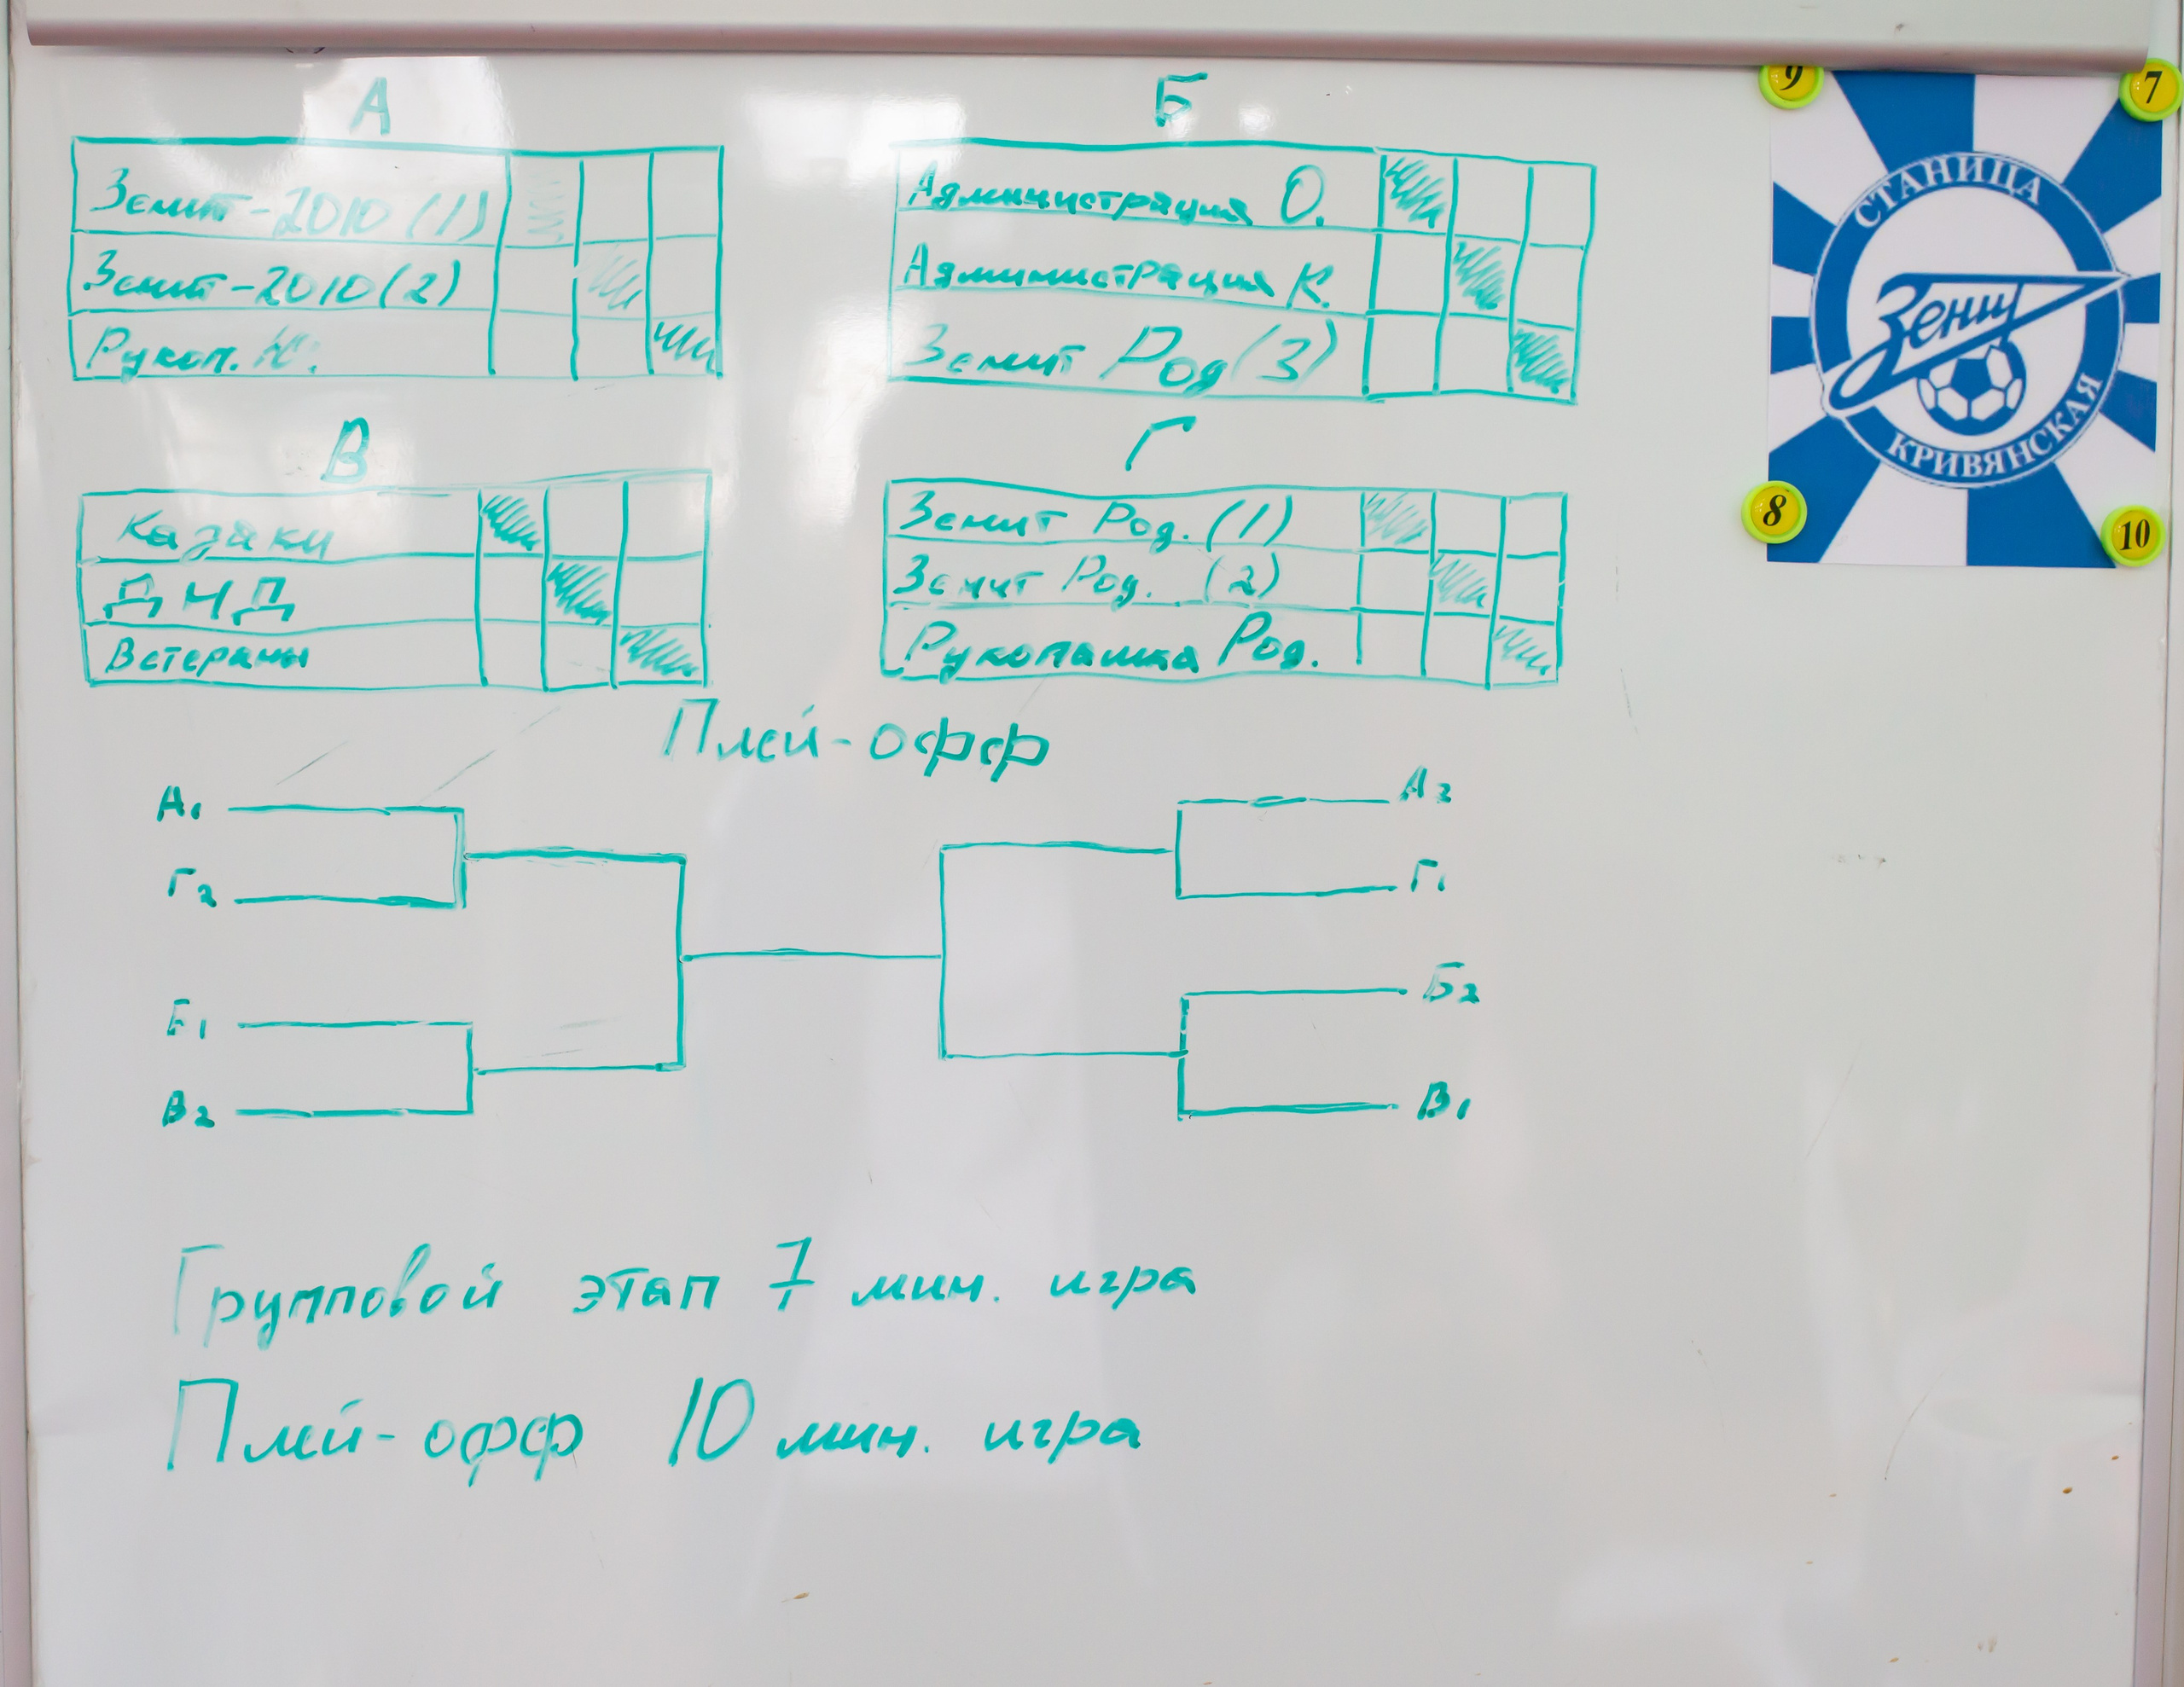 А
Зенит-2010 (1)
Зенит-2010 (2)
Рукоп. Ю.
Б
Администрация О.
Администрация К.
Зенит Род (3)
В
Казаки
ДНД
Ветераны
Г
Зенит Род. (1)
Зенит Род. (2)
Рукопашка Род.
Плей-офф
А1
Г2
Б1
В2
А2
Г1
Б2
В1
Групповой этап 7 мин. игра
Плей-офф 10 мин. игра
9
7
СТАНИЦА
Зенит
КРИВЯНСКАЯ
8
10